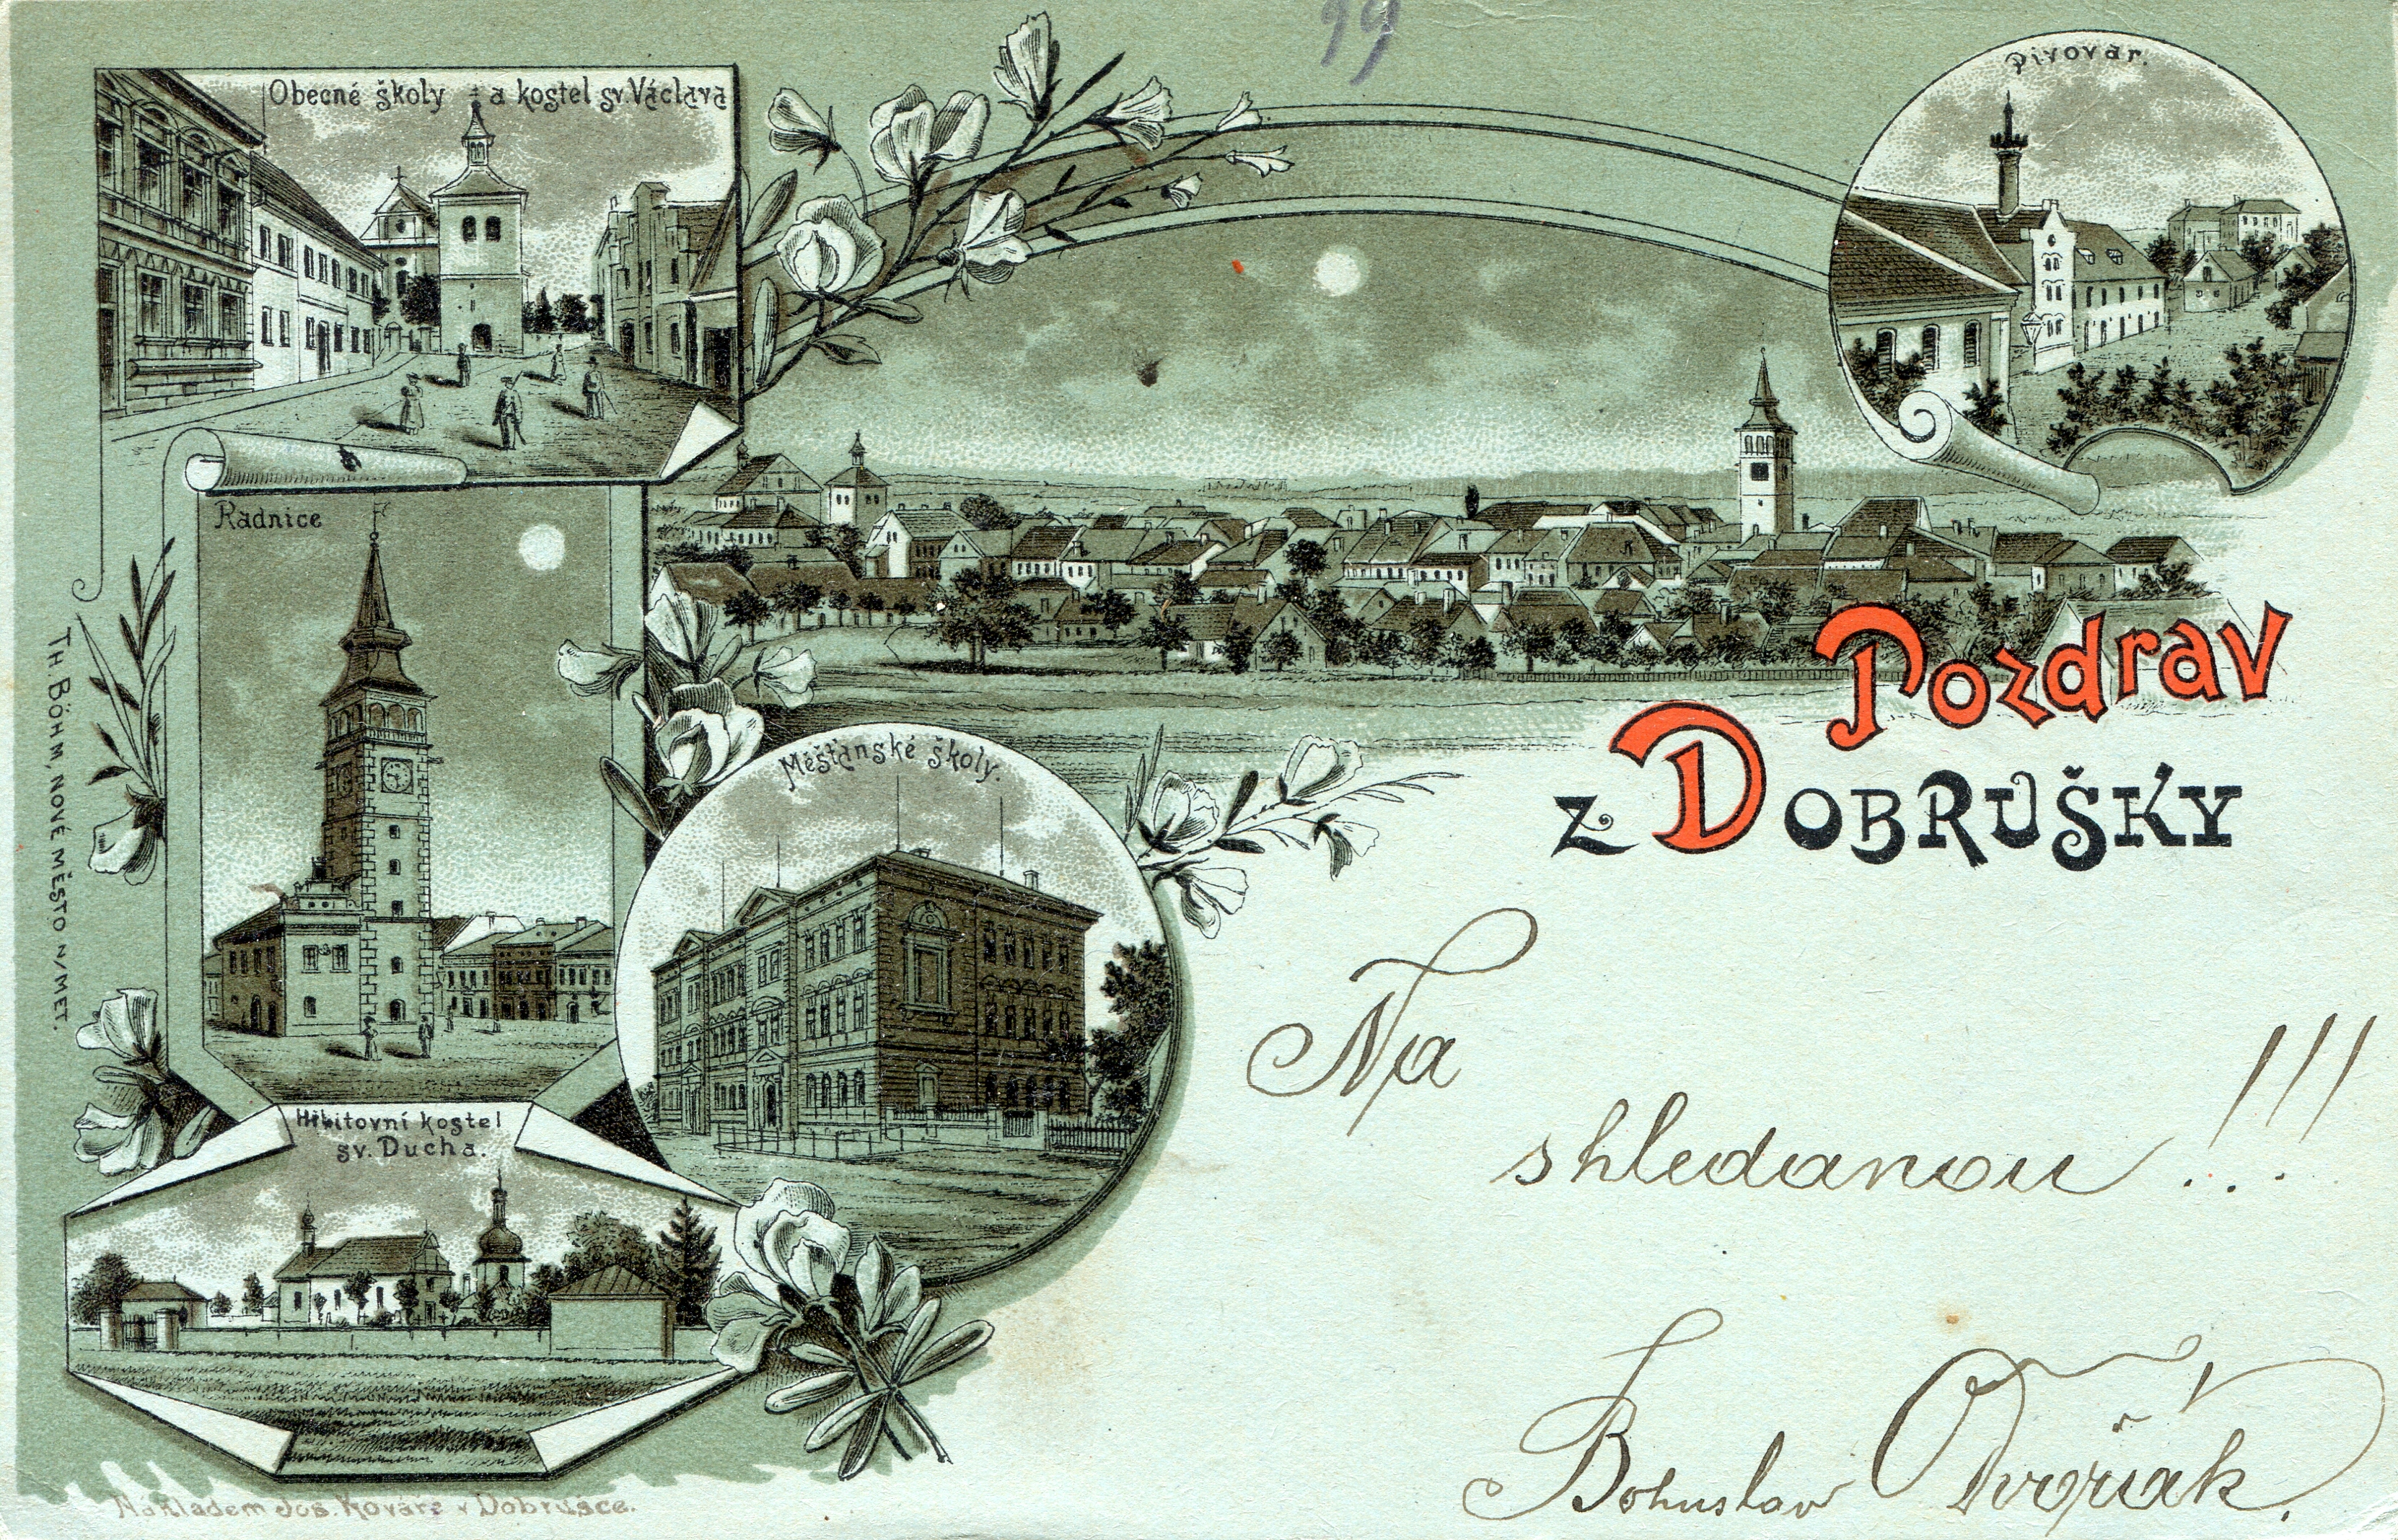 99
Obecné školy a kostel sv. Václava
Pivovár.
Radnice
Pozdrav
z DOBRUŠKY
Měšťanské školy.
TH. BÖHM, NOVÉ MĚSTO N/MET.
Na
shledanou...!!!
Hřbitovní kostel
sv. Ducha.
Bohuslav Dvořák.
Nákladem Jos. Kováře v Dobrušce.